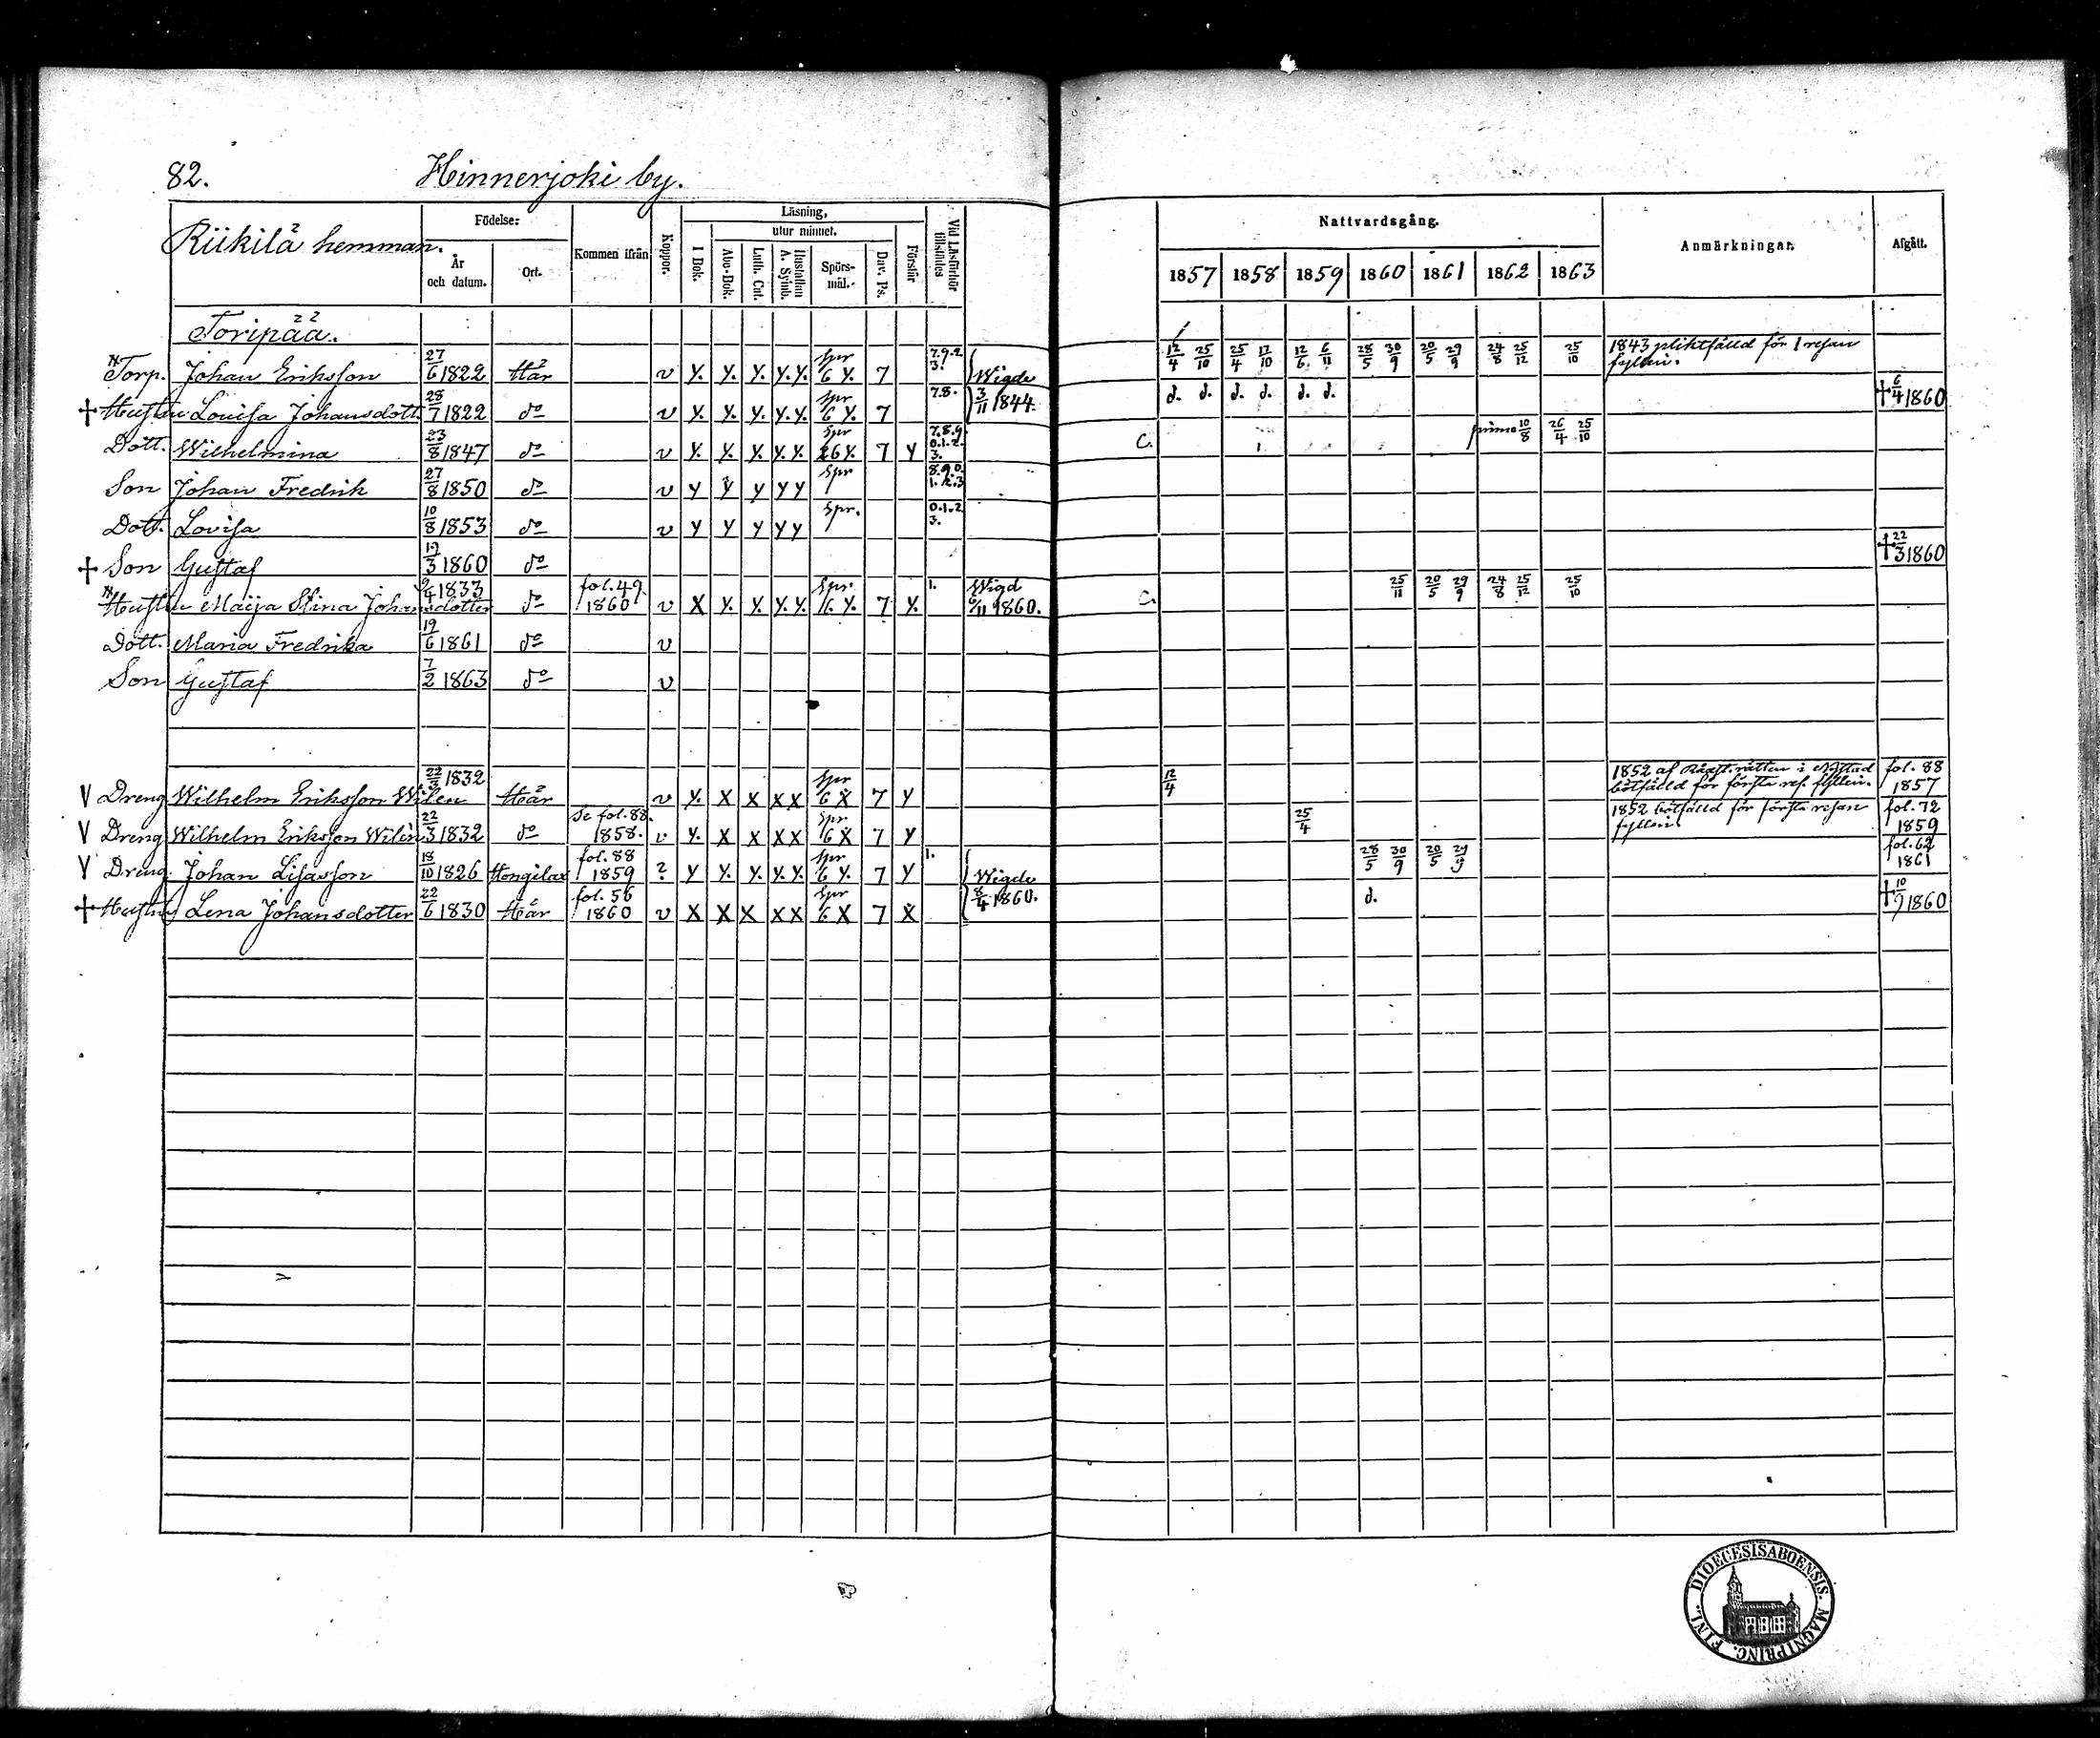 82. Hinnerjoki by.
Riikilä hemman. Födelse: År och datum. Ort. Kommen ifrån Koppor. Läsning, utur minnet. I Bok. Abc-Bok. Luth. Cat. Hustaflan A. Symb. Spörs-mål. Dav. Ps. Förstår Vid Läsförhör tillstädes
Nattvardsgång. Anmärkningar. Afgått.
1857 1858 1859 1860 1861 1862 1863
Toripää.
Torp. Johan Eriksson 27/6 1822 Här v y. y. y. y. y. Spr 6 y. 7 7.9.2. 3. Wigde 12/4 25/10 25/4 17/10 12/6 6/11 28/5 30/9 20/5 29/9 24/8 25/12 25/10 1843 pliktfälld för 1 resan fylleri.
† Hustru Lovisa Johansdott. 28/7 1822 do v y. y. y. y. y. Spr 6 y. 7 7.8. 3/11 1844. d. d. d. d. d. d. † 6/4 1860
Dott. Wilhelmina 23/8 1847 do v y. y. y. y. y. Spr 6 y. 7 y 7.8.9. 0.1.2. 3. C. primo 10/8 26/4 25/10
Son Johan Fredrik 27/8 1850 do v y y y y y Spr 8.9.0. 1.2.3
Dott. Lovisa 10/8 1853 do v y y y y y Spr. 0.1.2 3.
† Son Gustaf 19/3 1860 do † 22/3 1860
Hustru Maija Stina Johansdotter 9/4 1833 do fol. 49. 1860 v X y. y. y. y. Spr. 6 y. 7 y. 1. Wigd 6/11 1860. C. 25/11 20/5 29/9 24/8 25/12 25/10
Dott. Maria Fredrika 19/6 1861 do v
Son Gustaf 7/2 1863 do v
V Dreng Wilhelm Eriksson Wilen 22/3 1832 Här v y. X X X X Spr 6 X 7 y 12/4 1852 af i Nystad bötfälld för första res. fylleri. fol. 88 1857
V Dreng Wilhelm Eriksson Wilén 22/3 1832 do Se fol. 88. 1858. v y. X X X X Spr 6 X 7 y 25/4 1852 bötfälld för första resan fylleri. fol. 72 1859
V Dreng Johan Lisasson 18/10 1826 Hongilax fol. 88 1859 ? y y. y. y. y. Spr 6 y. 7 y 1. Wigde 28/5 30/9 20/5 29/9 fol. 62 1861
† Hustru Lena Johansdotter 22/6 1830 Här fol. 56 1860 v X X X X X Spr 6 X 7 X 8/4 1860. d. † 10/9 1860
DIOECESIS ABOENSIS. MAGNI PRINC. FINL.